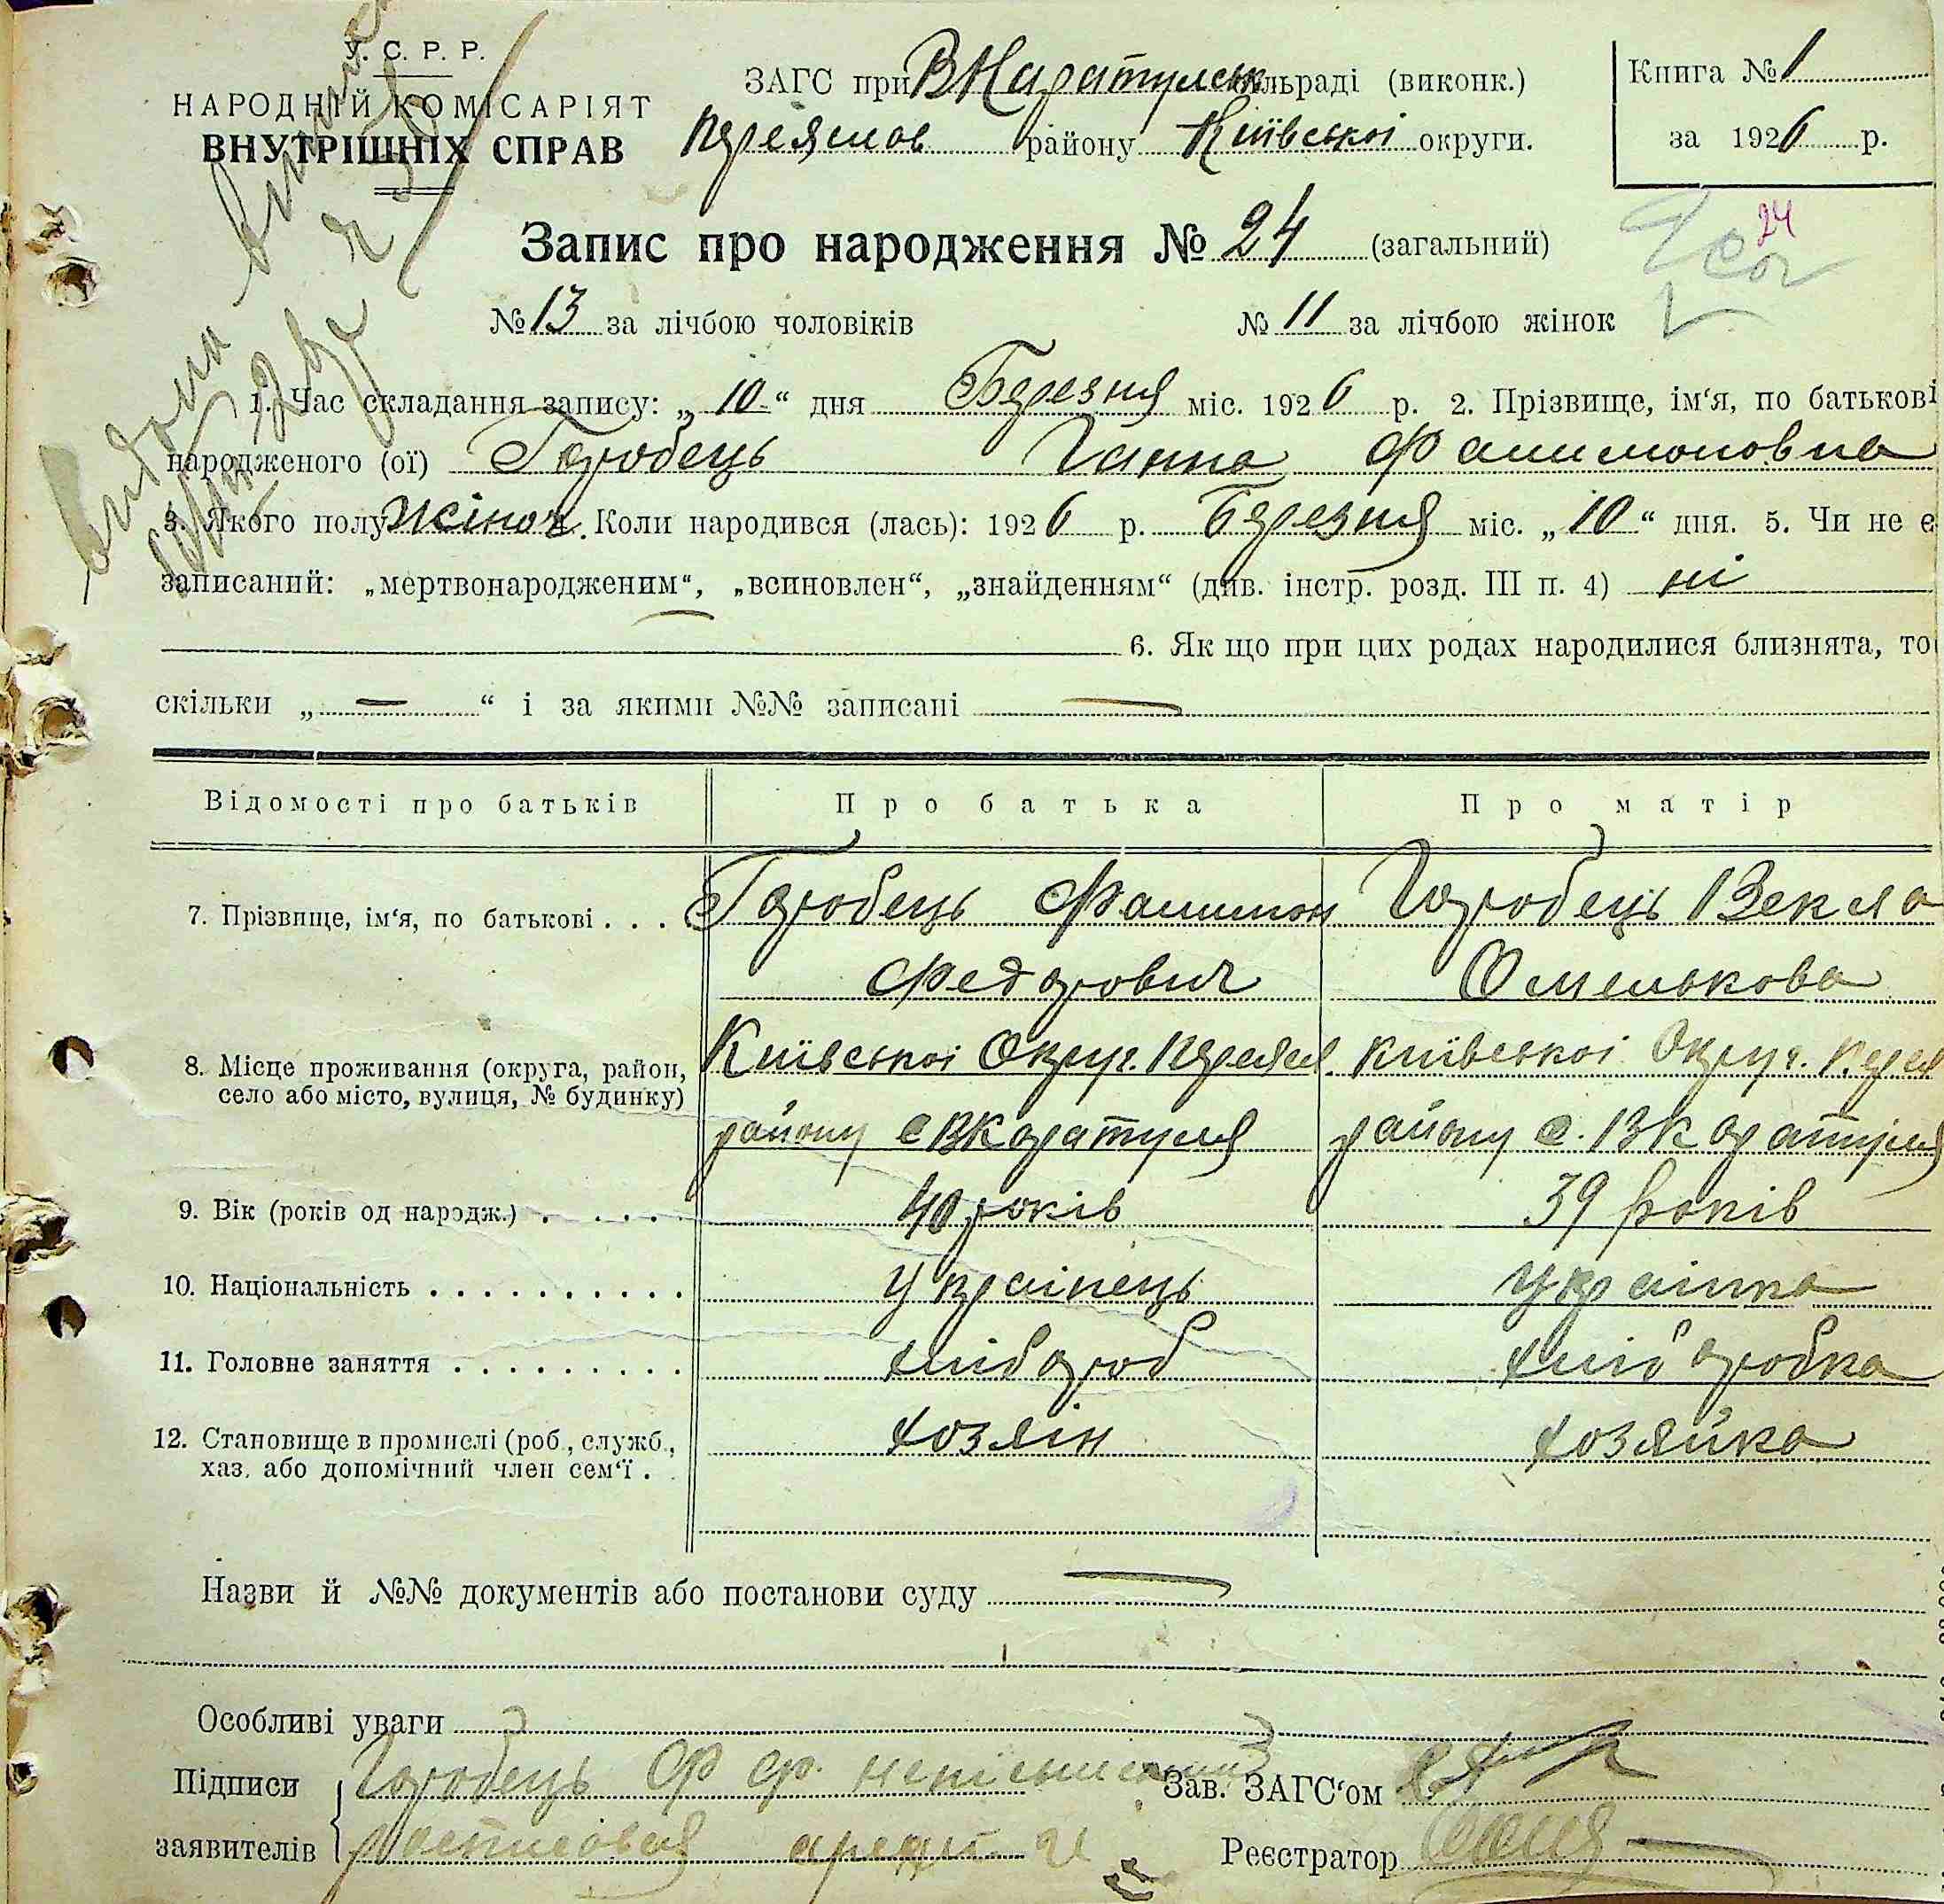 У. С. Р. Р.
НАРОДНІЙ КОМІСАРІЯТ
ВНУТРІШНІХ СПРАВ
ЗАГС при ВКаратульск льраді (виконк.)
Переяслов району Київської округи.
Книга № 1
за 1926 р.
Запис про народження № 24 (загальний)
24
№ 13 за лічбою чоловіків № 11 за лічбою жінок
1. Час складання запису: „10“ дня Березня міс. 1926 р. 2. Прізвище, ім‘я, по батькові
народженого (ої) Горобець Ганна Филимоновна
3. Якого полу жіноч. Коли народився (лась): 1926 р. Березня міс. „10“ дня. 5. Чи не є
записаний: „мертвонародженим“, „всиновлен“, „знайденням“ (див. інстр. розд. III п. 4) ні
6. Як що при цих родах народилися близнята, то
скільки „ — “ і за якими №№ записані —
Відомості про батьків Про батька Про матір
7. Прізвище, ім‘я, по батькові . . . . Горобець Филимон Горобець Векла
Федорович Омелькова
8. Місце проживання (округа, район, Київської Округ. Переясл. Київської Округ. Переял
село або місто, вулиця, № будинку)
району с ВКаратуля району с. ВКаратуля
9. Вік (років од народж.) . . . . . 40 років 39 років
10. Національність . . . . . . . . . . . Українець Українка
11. Головне заняття . . . . . . . . . . хлібороб хліборобка
12. Становище в промислі (роб., служб., хозяін хозяйка
хаз. або допомічний член сем‘ї . .
Назви й №№ документів або постанови суду —
Особливі уваги
Підписи Горобець Ф Ф. неписьменний Зав. ЗАГС‘ом
заявителів Реєстратор